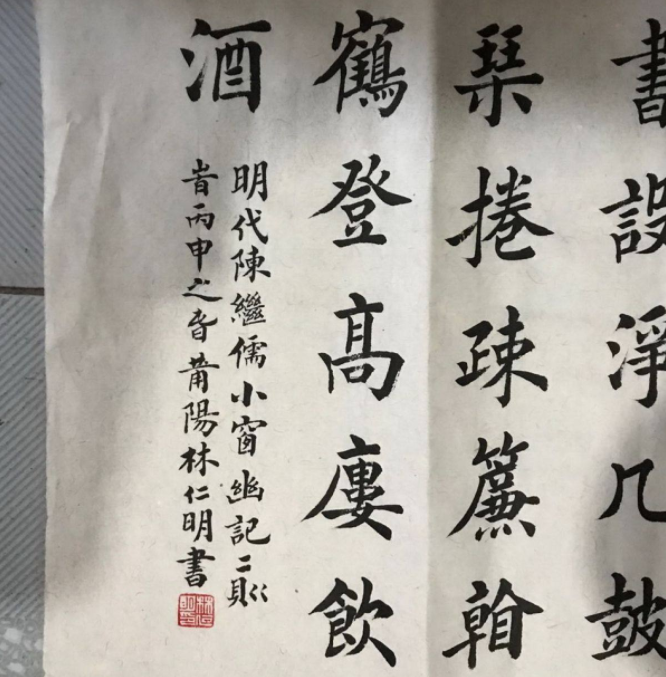 書設淨几鼓
琹捲疎簾看
鶴登高廔飲
酒
明代陳繼儒小窗幽記二則
旹丙申之旾莆陽林仁明書